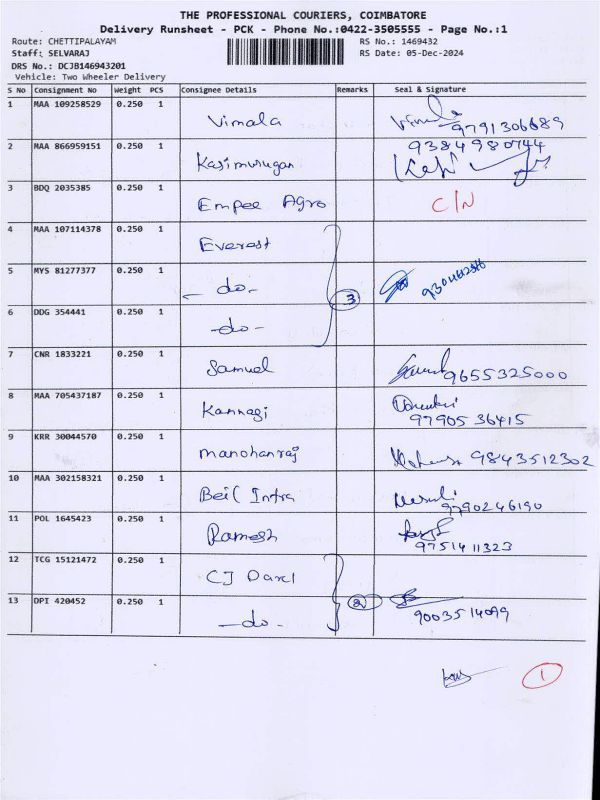 THE PROFESSIONAL COURIERS, COIMBATORE
Delivery Runsheet - PCK - Phone No.:0422-3505555 - Page No.:1
Route: CHETTIPALAYAM RS No.: 1469432
Staff: SELVARAJ RS Date: 05-Dec-2024
DRS No.: DCJB146943201
Vehicle: Two Wheeler Delivery
S No Consignment No Weight PCS Consignee Details Remarks Seal & Signature
1 MAA 109258529 0.250 1 Vimala 9791306689
2 MAA 866959151 0.250 1 Kasimurugan 9384980744
3 BDQ 2035385 0.250 1 Empee Agro C/N
4 MAA 107114378 0.250 1 Everest
5 MYS 81277377 0.250 1 -do- 3
6 DDG 354441 0.250 1 -do-
7 CNR 1833221 0.250 1 Samuel 9655325000
8 MAA 705437187 0.250 1 Kannagi 9790536415
9 KRR 30044570 0.250 1 manohanraj 9843512302
10 MAA 302158321 0.250 1 Beil Intra 9790246190
11 POL 1645423 0.250 1 Ramesh 9751411323
12 TCG 15121472 0.250 1 CJ Darcl
13 DPI 420452 0.250 1 -do- 2 9003514099
1